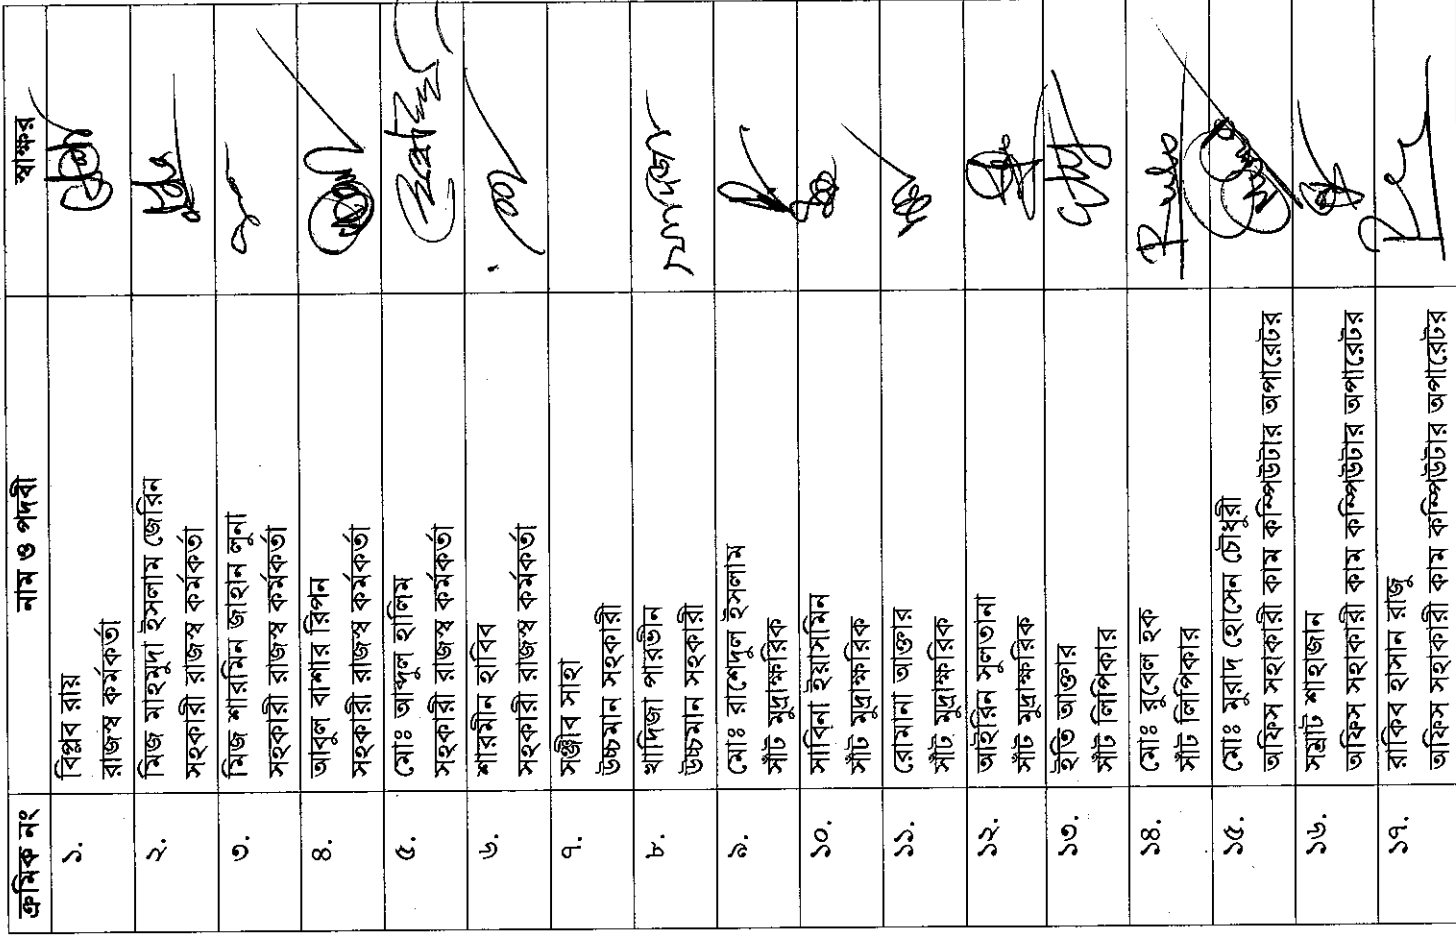 ক্রমিক নং নাম ও পদবী স্বাক্ষর
১. বিপ্লব রায়
রাজস্ব কর্মকর্তা
২. মিজ মাহমুদা ইসলাম জেরিন
সহকারী রাজস্ব কর্মকর্তা
৩. মিজ শারমিন জাহান লুনা
সহকারী রাজস্ব কর্মকর্তা
৪. আবুল বাশার রিপন
সহকারী রাজস্ব কর্মকর্তা
৫. মোঃ আব্দুল হালিম
সহকারী রাজস্ব কর্মকর্তা
৬. শারমীন হাবিব
সহকারী রাজস্ব কর্মকর্তা
৭. সঞ্জীব সাহা
উচ্চমান সহকারী
৮. খাদিজা পারভীন
উচ্চমান সহকারী
৯. মোঃ রাশেদুল ইসলাম
সাঁট মুদ্রাক্ষরিক
১০. সাবিনা ইয়াসমিন
সাঁট মুদ্রাক্ষরিক
১১. রোমানা আক্তার
সাঁট মুদ্রাক্ষরিক
১২. আইরিন সুলতানা
সাঁট মুদ্রাক্ষরিক
১৩. ইতি আক্তার
সাঁট লিপিকার
১৪. মোঃ রুবেল হক
সাঁট লিপিকার
১৫. মোঃ মুরাদ হোসেন চৌধুরী
অফিস সহাকারী কাম কম্পিউটার অপারেটর
১৬. সম্রাট শাহাজান
অফিস সহাকারী কাম কম্পিউটার অপারেটর
১৭. রাকিব হাসান রাজু
অফিস সহাকারী কাম কম্পিউটার অপারেটর